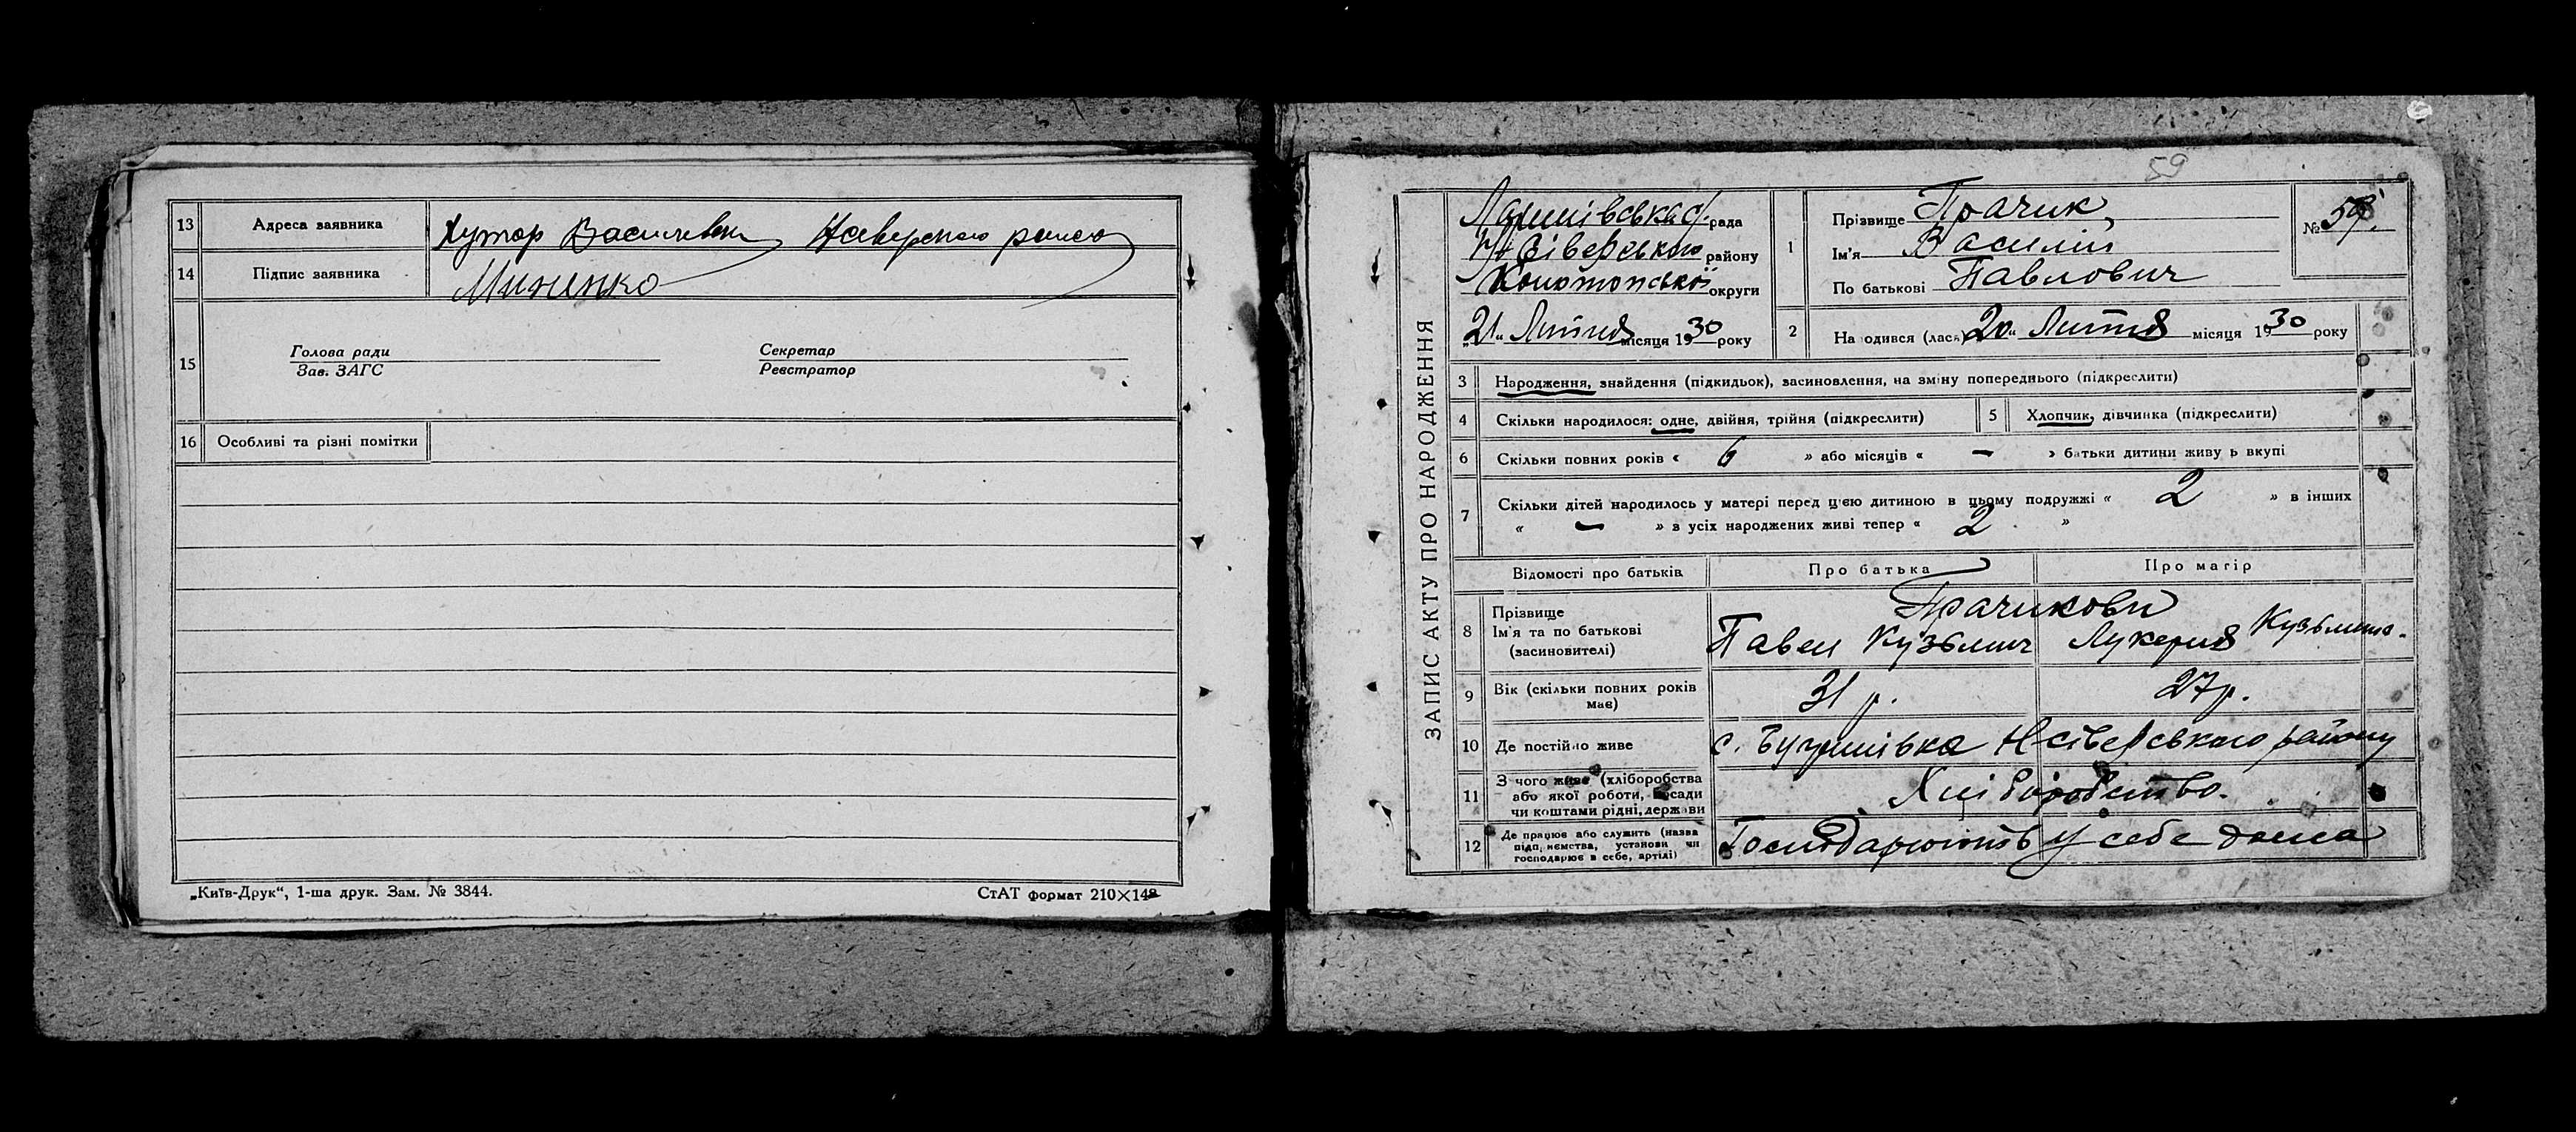 13 Адреса заявника Хутор Василевка Н-Северского района
14 Підпис заявника Миненко
15
Голова ради Секретар
Зав. ЗАГС Реєстратор
16 Особливі та різні помітки
„Київ-Друк“, 1-ша друк. Зам. № 3844. СтАТ формат 210×148
59
ЗАПИС АКТУ ПРО НАРОДЖЕННЯ
рада
Н-Сіверського району
Конотопської округи
„21“ Лютня місяця 1930 року
1 Прізвище Прачик
Ім'я Василій
По батькові Павлович
№
2 На одився (лася) 20“ Лютня місяця 1930 року
3 Народження, знайдення (підкидьок), засиновлення, на зміну попереднього (підкреслити)
4 Скільки народилося: одне, двійня, трійня (підкреслити) 5 Хлопчик, дівчинка (підкреслити)
6 Скільки повних років « 6 » або місяців « — » батьки дитини живу ь вкупі
7 Скільки дітей народилось у матері перед цією дитиною в цьому подружжі « 2 » в інших
« — » з усіх народжених живі тепер « 2 »
Відомості про батьків Про батька Про матір
8 Прізвище Прачикови
Ім'я та по батькові Павел Кузьмич Лукерия Кузьмина.
(засиновителі)
9 Вік (скільки повних років має) 31 р. 27 р.
10 Де постійно живе с. Н-Сіверського району
11 З чого живе (хліборобства
або якої роботи, посади
чи коштами рідні, держави Хліборобство.
12 Де працює або служить (назва
підприємства, установи чи
господарює в себе, артілі) Господарюють у себе дома